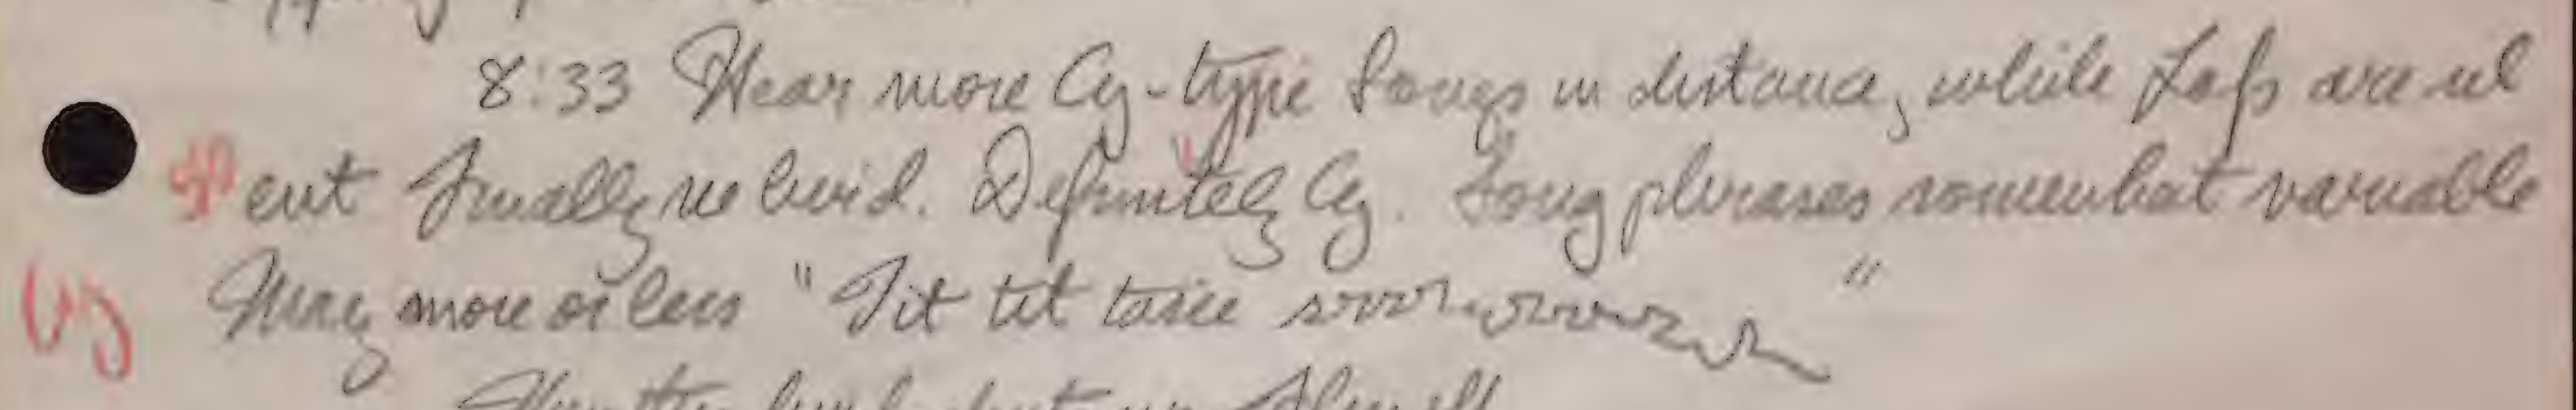 8:33 Hear more Cy-type Songs in distance, while Lafs are sil
ent Finally see bird. Definitely Cy. Song phrases somewhat variable
Cy May more or less "Tit tit tasee srrrrrrrrrrr"